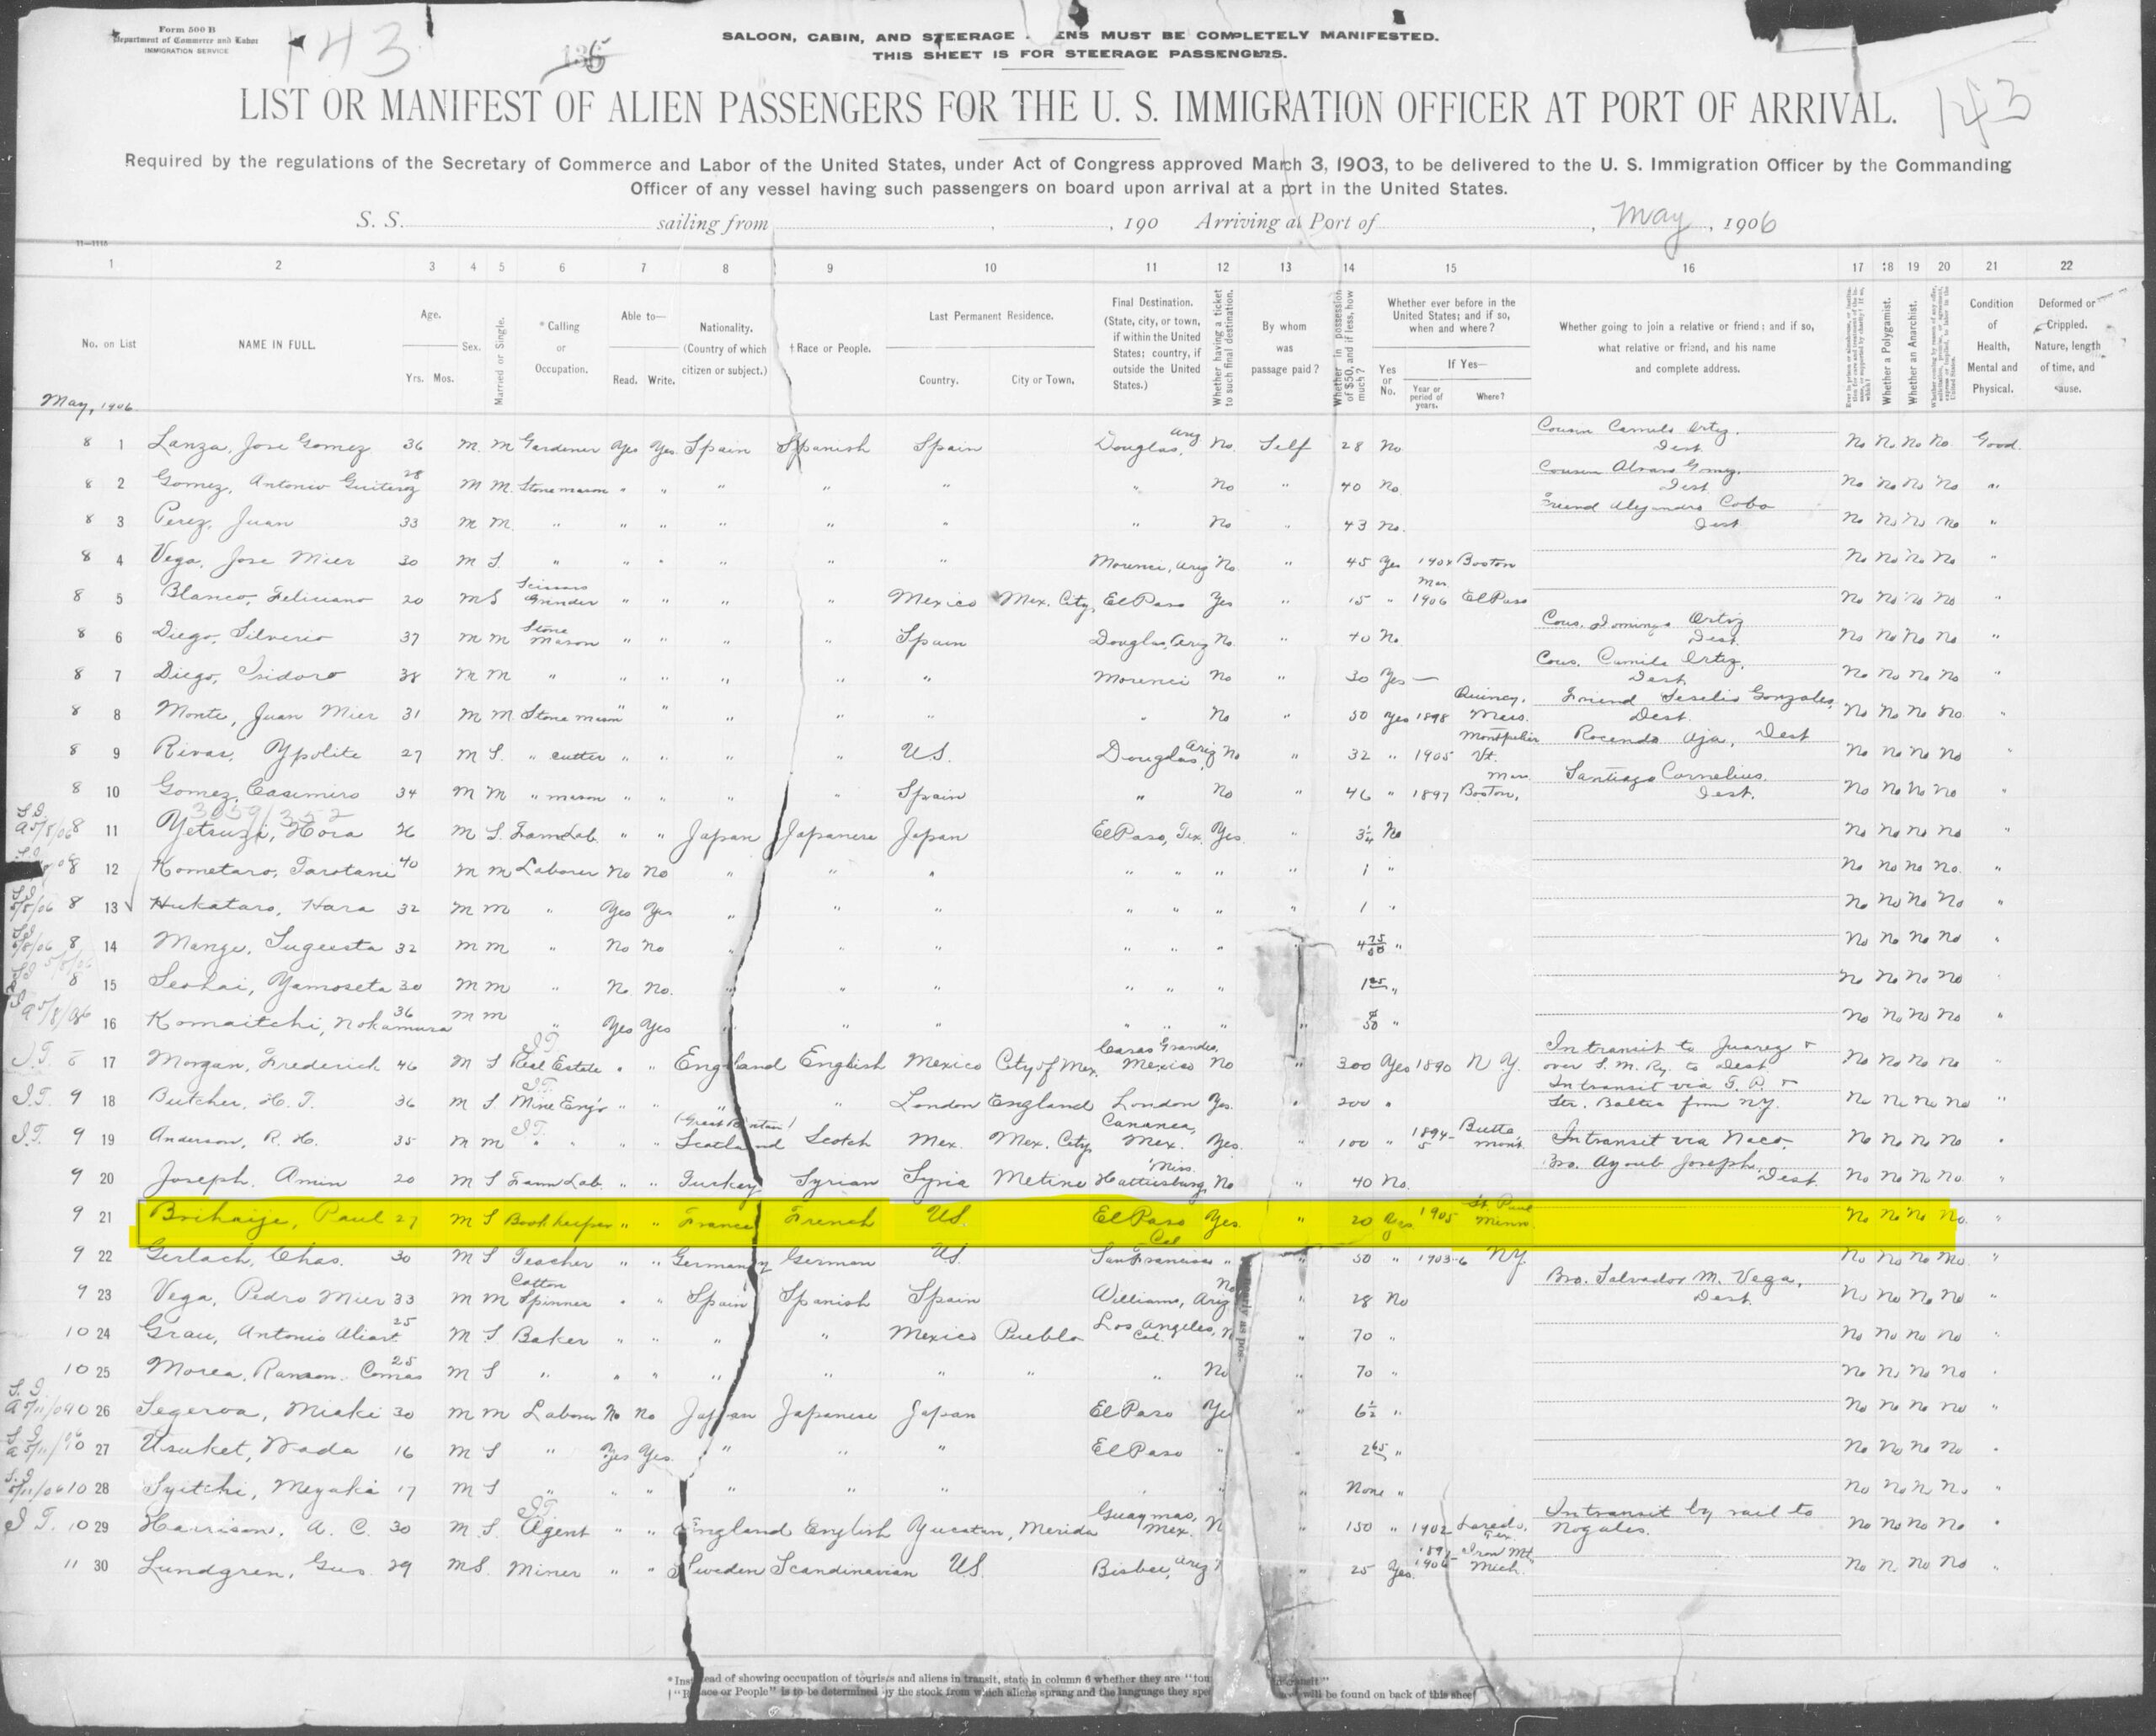 Form 500 B
Department of Commerce and Labor
IMMIGRATION SERVICE
143
SALOON, CABIN, AND STEERAGE ENS MUST BE COMPLETELY MANIFESTED.
THIS SHEET IS FOR STEERAGE PASSENGERS.
LIST OR MANIFEST OF ALIEN PASSENGERS FOR THE U. S. IMMIGRATION OFFICER AT PORT OF ARRIVAL.
143
Required by the regulations of the Secretary of Commerce and Labor of the United States, under Act of Congress approved March 3, 1903, to be delivered to the U. S. Immigration Officer by the Commanding
Officer of any vessel having such passengers on board upon arrival at a port in the United States.
S. S. sailing from , , 190 Arriving at Port of , May , 1906
11—1116
1 2 3 4 5 6 7 8 9 10 11 12 13 14 15 16 17 18 19 20 21 22
No. on List
NAME IN FULL.
Age.
Yrs. Mos.
Sex.
Married or Single.
*Calling or Occupation.
Able to—
Read. Write.
Nationality. (Country of which citizen or subject.)
†Race or People.
Last Permanent Residence.
Country. City or Town.
Final Destination. (State, city, or town, if within the United States; country, if outside the United States.)
Whether having a ticket to such final destination.
By whom was passage paid?
Whether in possession of $50, and if less, how much?
Whether ever before in the United States; and if so, when and where?
Yes or No.
If Yes—
Year or period of years. Where?
Whether going to join a relative or friend; and if so, what relative or friend, and his name and complete address.
Whether a Polygamist.
Whether an Anarchist.
Condition of Health, Mental and Physical.
Deformed or Crippled. Nature, length of time, and cause.
May, 1906
8 1 Lanza, Jose Gomez 36 M. M Gardener Yes Yes Spain Spanish Spain Douglas, Ariz No. Self 28 No Cousin Camilo Ortiz. Dest. No No No No Good.
8 2 Gomez, Antonio 28 M M. Stone mason " " " " " " No " 40 No. Cousin Alvaro Gomez. Dest. No No No No "
8 3 Perez, Juan 33 M M. " " " " " " " No " 43 No. Friend Alejandro Cobo Dest No No No No "
8 4 Vega, Jose Mier 30 M S. " " " " " " Morenci, Ariz No. " 45 Yes 1904 Boston No No No No "
8 5 Blanco, Feliciano 20 M S Scissors Grinder " " " " Mexico Mex. City, El Paso Yes " 15 " Mar 1906 El Paso No No No No "
8 6 Diego, Silverio 37 M M Stone Mason " " " " Spain Douglas, Ariz No. " 40 No. Cous. Domingo Ortiz Dest. No No No No "
8 7 Diego, Isidoro 38 M M " " " " " " Morenci No " 30 Yes — Cous. Camilo Ortiz, Dest. No No No No "
8 8 Monte, Juan Mier 31 M M. Stone mason " " " " " " No " 50 Yes 1898 Quincy, Mass. Friend Gonzales, Dest. No No No No "
8 9 Rivas, Ypolite 27 M S. " cutter " " " " US. Douglas, Ariz No " 32 " 1905 Montpelier Vt. Rosendo Aja, Dest No No No No "
8 10 Gomez, Casimiro 34 M M " mason " " " " Spain " No " 46 " 1897 Boston, Mass. Santiago Cornelius. Dest. No No No No "
8 11 Yetsuzi, Hora 26 M S. Farm Lab. " " Japan Japanese Japan El Paso, Tex. Yes. " 3¼ No No No No No "
8 12 Kometaro, Tarotani 40 M M Laborer No No " " " " " " " 1 " No No No No. "
8 13 Hukataro, Hara 32 M M " Yes Yes " " " " " " " 1 " No No No No "
8 14 Mange, Sugeesta 32 M M " No No " " " " " " " 4 75/50 " No No No No "
8 15 Seohai, Yamoseta 30 M M " No. No. " " " " " " 1 25 " No No No No
16 Komaitchi, Nokamura 36 M M " Yes Yes " " " " " " " 50 " No No No No "
I.T. 8 17 Morgan, Frederick 46 M S Real Estate " " England English Mexico City of Mex. Casas Grandes, Mexico No " 300 Yes 1890 N Y. In transit to Juarez + over S. M. Ry. to Dest No No No No "
I.T. 9 18 Butcher, H. T. 36 M S Mine Eng'r " " " " London England London Yes. " 200 " In transit via T. P. + Str. Baltic from N.Y. No No No No "
I.T. 9 19 Anderson, R. H. 35 M M " " " " (Great Britain) Scotland Scotch Mex. Mex. City, Cananea, Mex. Yes. " 100 " 1894-5 Butte Mont. In transit via Naco. No No No No "
9 20 Joseph, Amin 20 M S Farm Lab. " " Turkey Syrian Syria Metine Hattiesburg, Miss. No " 40 No. Bro. Ayoub Joseph, Dest. No No No No. "
9 21 Brihaije, Paul 27 M S Book keeper " " France French US. El Paso Yes. " 20 Yes. 1905 St. Paul Minn. No No No No. "
9 22 Gerlach, Chas. 30 M S Teacher " " Germany German US San Francisco Cal " " 50 " 1903-6 N.Y. No No No No. "
9 23 Vega, Pedro Mier 33 M M Cotton Spinner " " Spain Spanish Spain Williams, Ariz No " 28 No Bro. Salvador M. Vega, Dest. No No No No "
10 24 Grau, Antonio Aliart 25 M S Baker " " " " Mexico Puebla Los Angeles, Cal. " 70 " No No No No "
10 25 Morea, Ramon Comas 25 M S " " " " " " " " No " 70 " No No No No "
10 26 Segerva, Miaki 30 M M Laborer No No Japan Japanese Japan El Paso Yes " 6½ " No No No No "
10 27 Usuket, Wada 16 M S " Yes Yes " " " El Paso " " 2 65 " No No No No "
10 28 Syitchi, Meyaki 17 M S " " " " " " " " " None " No No No No "
I T. 10 29 Harrison, A. C. 30 M. S. Agent " " England English Yucatan, Merida Guaymas, Mex. N " 150 " 1902 Laredo, Tex In transit by rail to Nogales. No No No No "
11 30 Lundgren, Gus 29 M S. Miner " " Sweden Scandinavian US. Bisbee, Ariz " 25 Yes. 1891-1906 Iron Mt, Mich. No N. No No "
*Instead of showing occupation of tourists and aliens in transit, state in column 6 whether they are "tou
†"Race or People" is to be determined by the stock from which aliens sprang and the language they spe will be found on back of this sheet